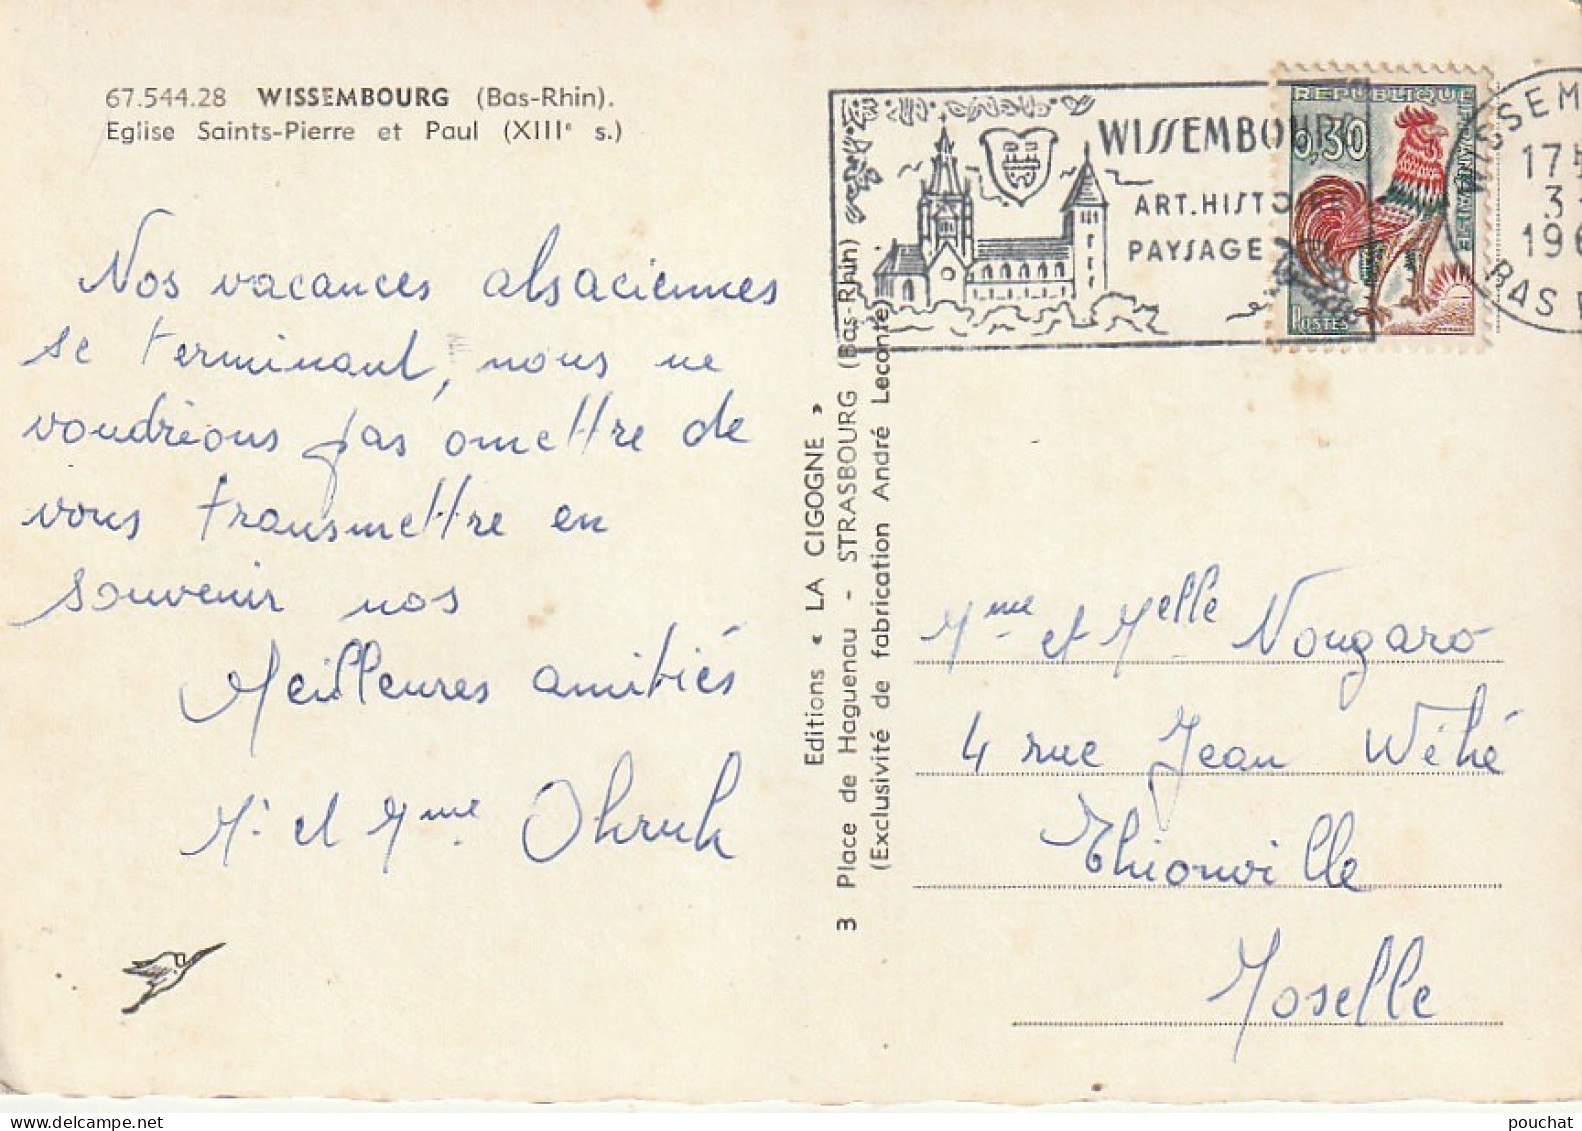 67.544.28 WISSEMBOURG (Bas-Rhin).
Eglise Saints-Pierre et Paul (XIIIe s.)
Nos vacances alsaciennes
se terminant, nous ne
voudrions pas omettre de
vous transmettre en
souvenir nos
Meilleures amitiés
Mr et Mme
Editions « LA CIGOGNE »
3 Place de Haguenau - STRASBOURG (Bas-Rhin)
(Exclusivité de fabrication André Leconte)
WISSEMBOURG
ART.HISTOIRE
PAYSAGE
REPUBLIQUE FRANÇAISE
0,30
POSTES
WISSEM
17H
3
196
BAS
Mme et Melle Nougaro
4 rue Jean Wéhé
Thionville
Moselle
pouchat